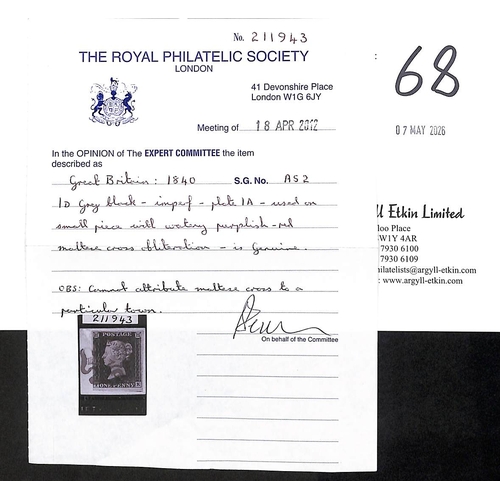 No. 211943
THE ROYAL PHILATELIC SOCIETY
LONDON
41 Devonshire Place
London W1G 6JY
Meeting of 18 APR 2012
In the OPINION of The EXPERT COMMITTEE the item
described as
Great Britain: 1840 S.G. No. AS2
1D Grey black - imperf - plate 1A - used on
small piece with watery purplish-red
maltese cross obliteration - is genuine.
OBS: Cannot attribute maltese cross to a
particular town.
On behalf of the Committee
211943
POSTAGE
ONE PENNY
68
07 MAY 2026
ll Etkin Limited
loo Place
W1Y 4AR
7930 6100
7930 6109
hilatelists@argyll-etkin.com
: www.argyll-etkin.com